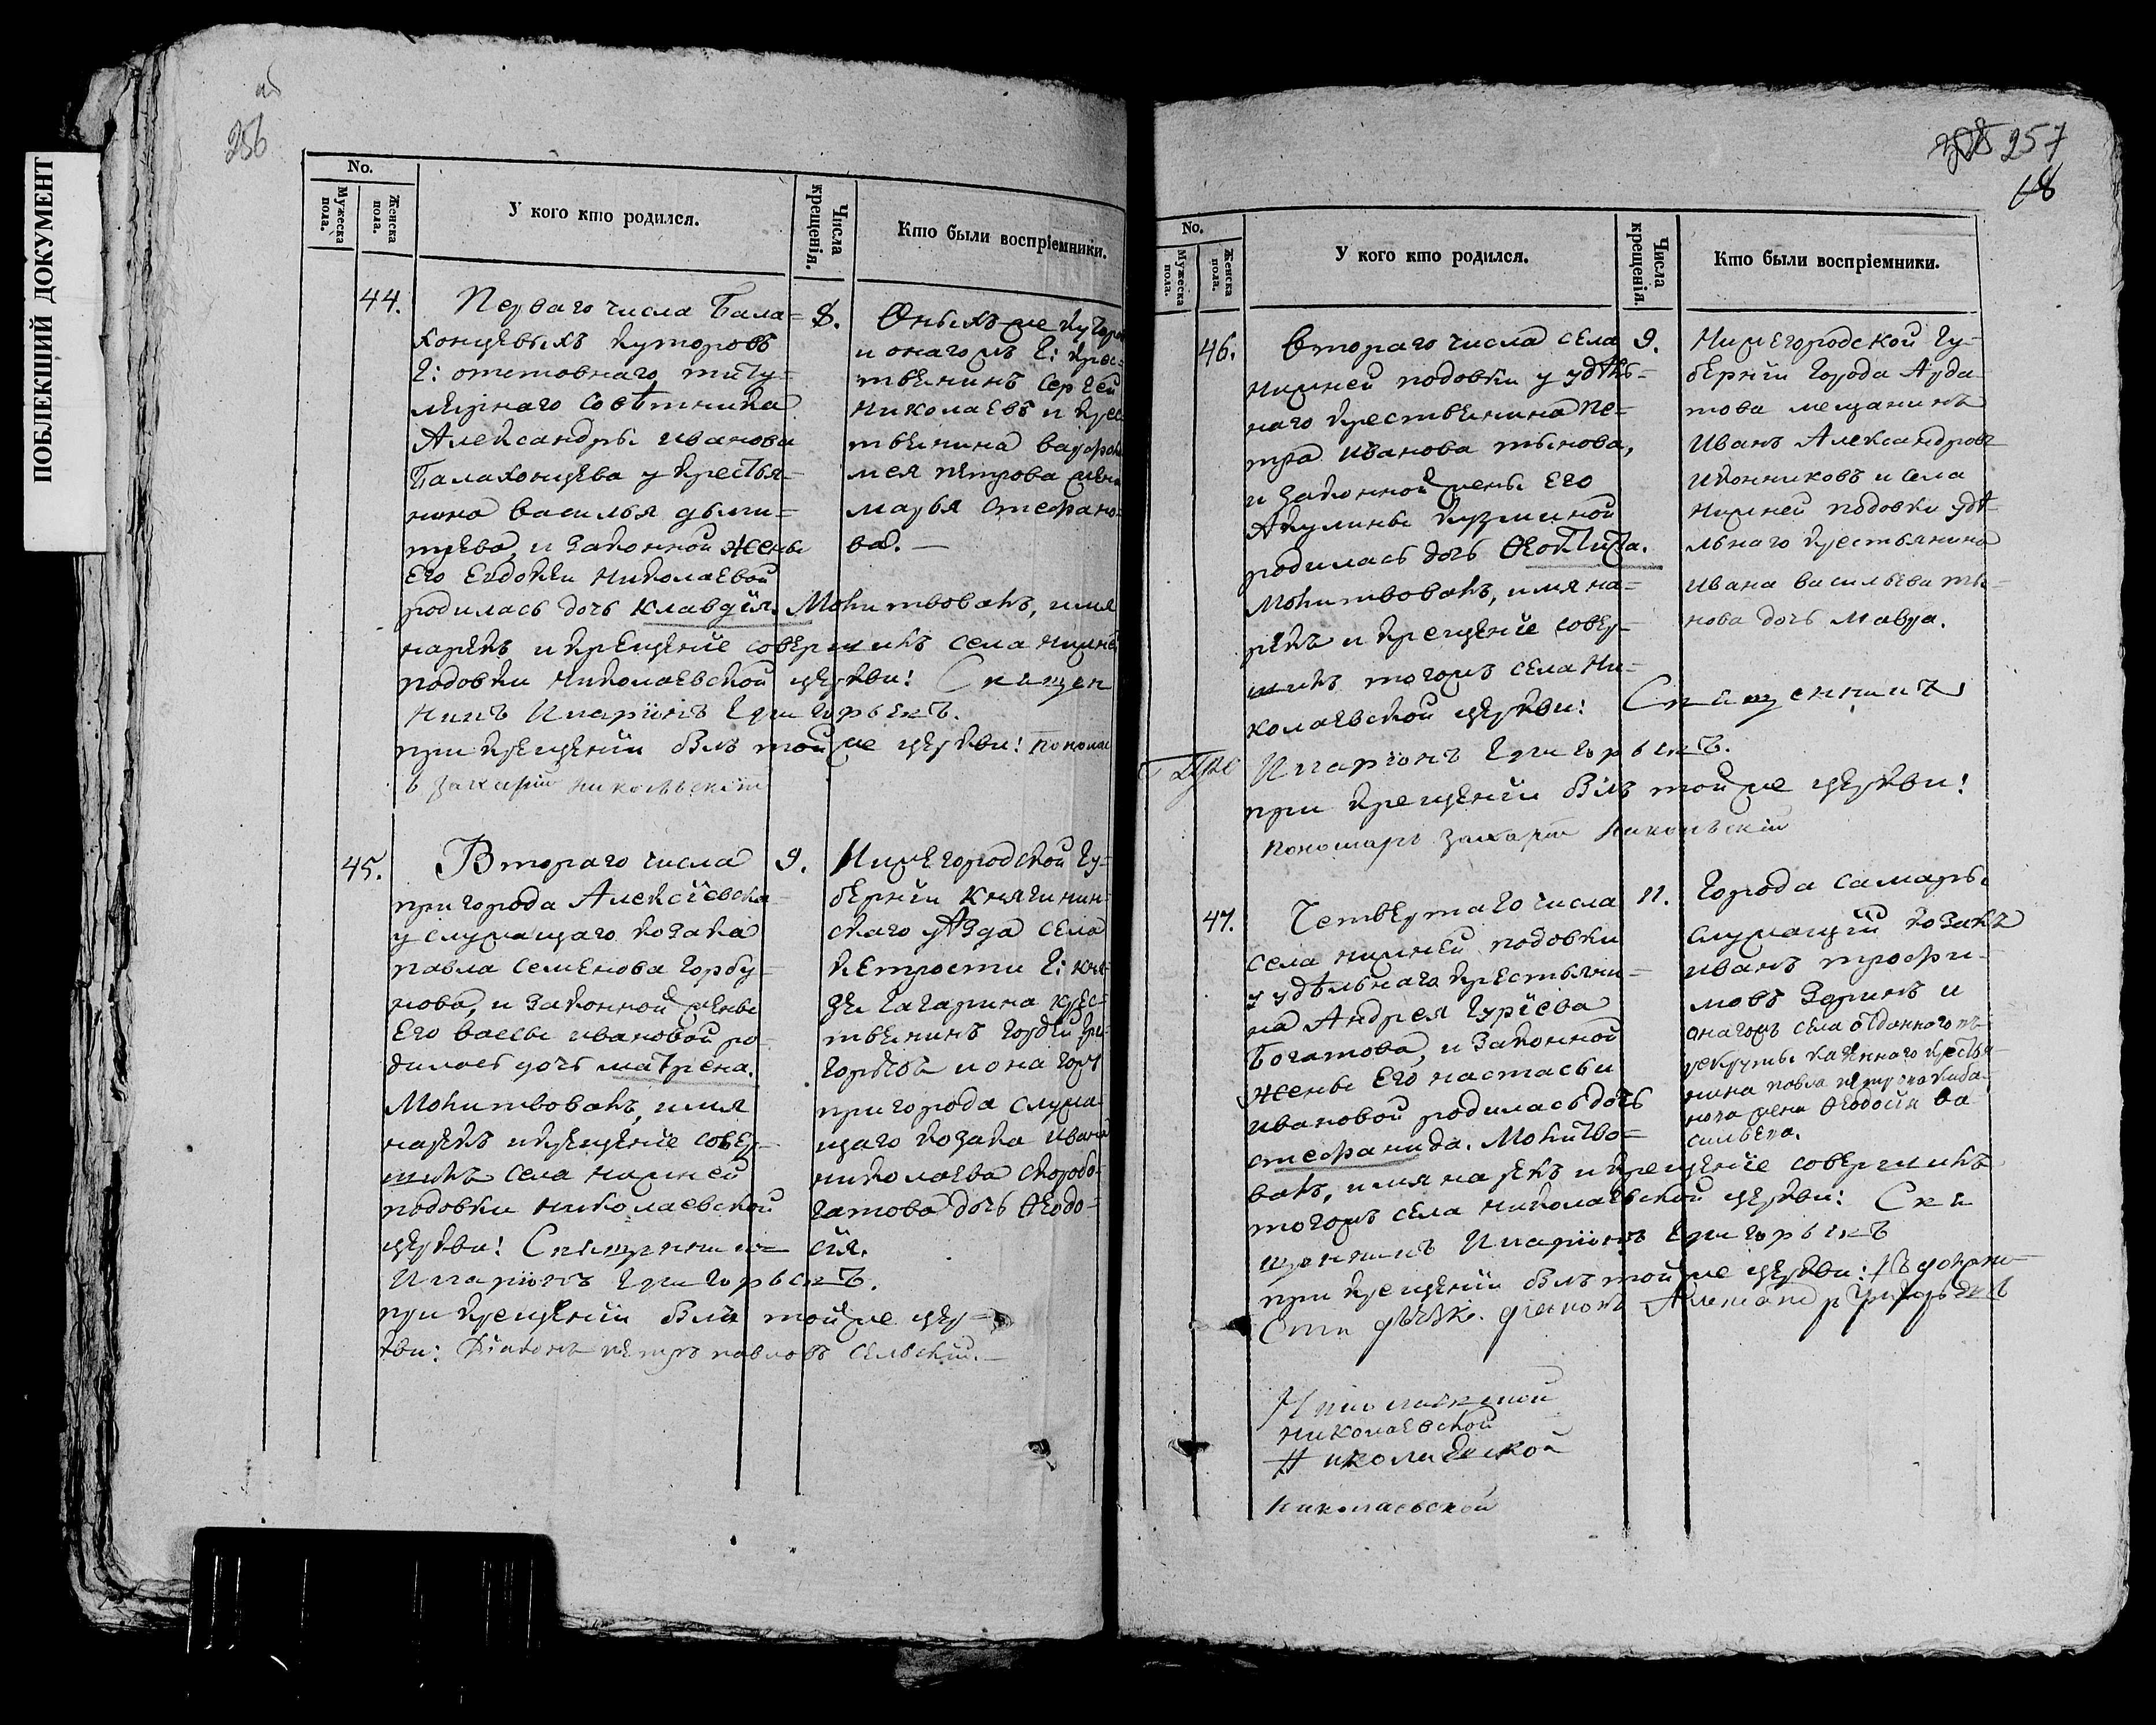 ПОБЛЕКШИЙ ДОКУМЕНТ
256
No.
Мужеска пола.
Женска пола.
У кого кто родился.
Числа крещенія.
Кто были воспріемники.
44.
Перваго числа Бала=
хонцевыхъ хуторовъ
Г: отставнаго титу=
лярнаго советника
Александры Иванова
Балахонцева у крестья=
нина Василья Дьми=
трева, и законной жены
Его Евдокеи Николаевой
родилась дочь Клавдія. Молитвовалъ, имя
нарекъ и крещеніе совершилъ села нижней
подовки Николаевской церкви: Священ
никъ Иларіонъ Григорьевъ.
при крещеніи былъ тойже церкви: поном
ь Захарій Никольскій
8.
Оныхже хутор
и онагожъ Г: крес=
тьянинъ Сергей
Николаевъ и крес
тьянина Варфоло
мея Петрова жена
Марья Стефано=
ва.—
45.
Втораго числа
пригорода Алексіевска
у служащаго козака
Павла Семенова Горбу=
нова, и законной жены
Его Вассы Ивановой ро=
дилась дочь Матрена.
Молитвовалъ, имя
нарекъ и крещеніе совер=
шилъ села нижней
подовки Николаевской
церкви: Священникъ
Иларіонъ Григорьевъ.
при крещеніи былъ тойже цер=
кви: Діаконъ Петръ Павловъ Сельскій.—
9.
Нижегородской Гу=
берніи Княгинин=
скаго уѣзда села
Г: кня=
зя Гагарина крес=
тьянинъ Гордей Гри=
горьевъ и онагожъ
пригорода служа=
щаго козака Ивана
Николаева Скоробо=
гатова дочь Ѳеодо=
сія.
257
18
No.
Мужеска пола.
Женска пола.
У кого кто родился.
Числа крещенія.
Кто были воспріемники.
46.
Втораго числа села
нижней подовки у удѣль=
наго крестьянина Пе=
тра Иванова Тынова,
и законной жены Его
Акулины Кузминой
родилась дочь Ѳеоктиста.
Молитвовалъ, имя на=
рекъ и крещеніе совер=
шилъ тогожъ села Ни=
колаевской церкви: Священникъ
Иларіонъ Григорьевъ.
при крещеніи былъ тойже церкви:
пономарь Захарій Никольскій
9.
Нижегородской Гу=
берніи города Арда=
това мещанинъ
Иванъ Александровъ
Иконниковъ и села
Нижней подовки удѣ=
льнаго крестьянина
Ивана Васильева Ты=
нова дочь Мавра.
47.
Четвертаго числа
села нижней подовки
у удѣльнаго крестьяни=
на Андрея Гуріева
Богатова, и законной
жены Его Настасьи
Ивановой родилась дочь
Стефанида. Молитво=
валъ, имя нарекъ и крещеніе совершилъ
тогожъ села Николаевской церкви: Свя
щенникъ Иларіонъ Григорьевъ
при крещеніи былъ тойже церкви:
дьячк. Григорьевъ
11.
Города Самары
служащій козакъ
Иванъ Трофи=
мовъ Зоринъ и
онагожъ села отданнаго въ
рекруты казеннаго крестья=
нина Павла Петрова
жена Ѳеодосія Ва
сильева.
Николаевской
Николаевской
Николаевской
Николаевской